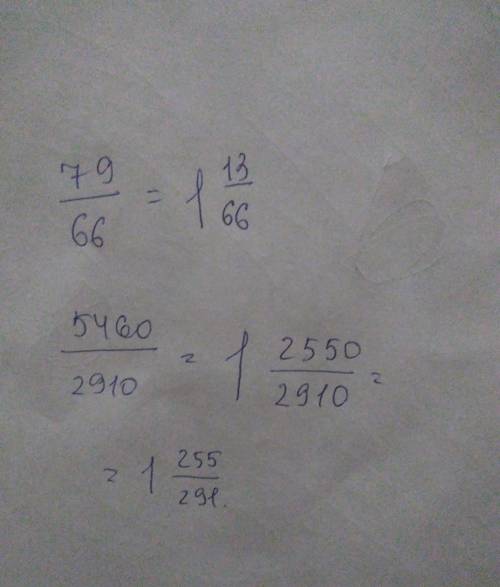 79/66 = 1 13/66
5460/2910 = 1 2550/2910 =
= 1 255/291.